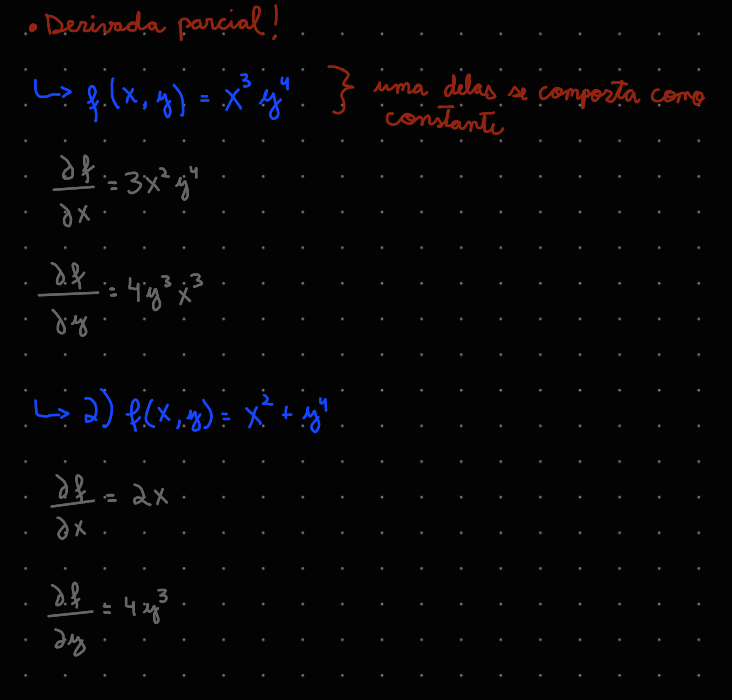 • Derivada parcial!
↳ f(x,y) = x³y⁴ } uma delas se comporta como
constante
∂f/∂x = 3x²y⁴
∂f/∂y = 4y³x³
↳ 2) f(x,y) = x² + y⁴
∂f/∂x = 2x
∂f/∂y = 4y³